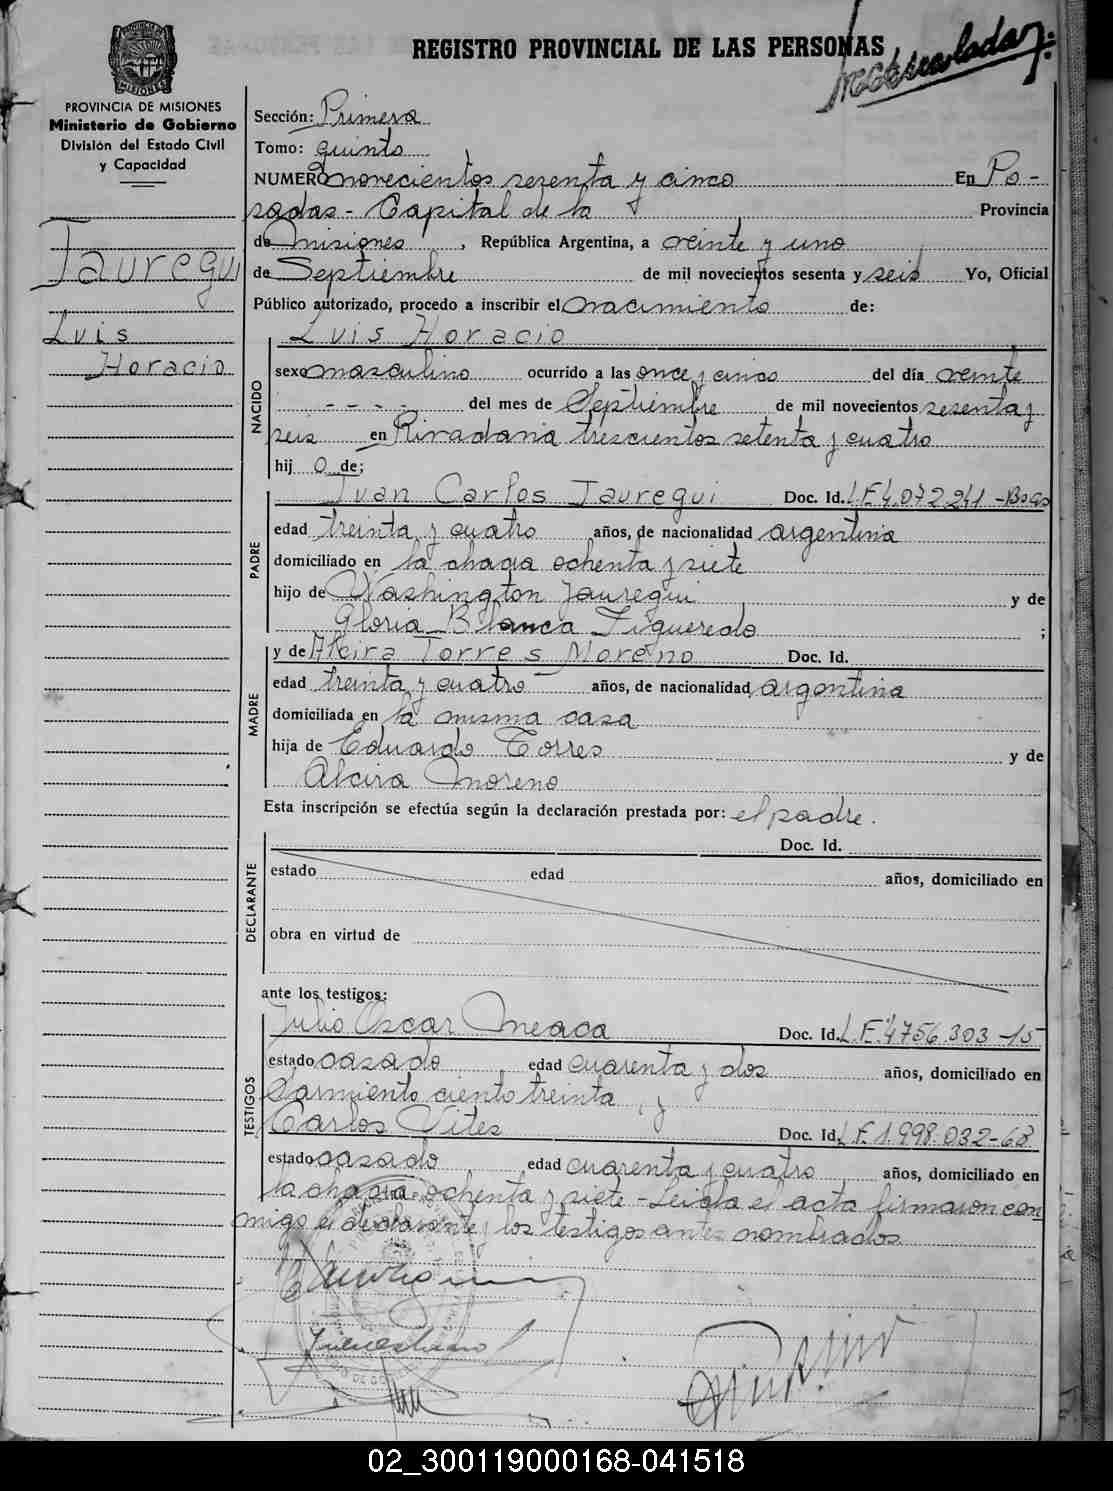 REGISTRO PROVINCIAL DE LAS PERSONAS
PROVINCIA DE MISIONES
Ministerio de Gobierno
División del Estado Civil
y Capacidad
Jauregui
Luis
Horacio
Sección: Primera
Tomo: quinto
NUMERO novecientos sesenta y cinco En Po-
sadas - Capital de la Provincia
de Misiones, República Argentina, a veinte y uno
de Septiembre de mil novecientos sesenta y seis Yo, Oficial
Público autorizado, procedo a inscribir el nacimiento de:
NACIDO
Luis Horacio
sexo masculino ocurrido a las once y cinco del día veinte
- - - - del mes de Septiembre de mil novecientos sesenta y
seis en Rivadavia trescientos setenta y cuatro
hij o de;
PADRE
Juan Carlos Jauregui Doc. Id. L.E. 4.072.241 -
edad treinta y cuatro años, de nacionalidad argentina
domiciliado en la chacra ochenta y siete
hijo de Washington Jauregui y de
Gloria Blanca Figueredo ;
MADRE
y de Alcira Torres Moreno Doc. Id.
edad treinta y cuatro años, de nacionalidad argentina
domiciliada en la misma casa
hija de Eduardo Torres y de
Alcira Moreno
Esta inscripción se efectúa según la declaración prestada por: el padre.
DECLARANTE
Doc. Id.
estado edad años, domiciliado en
obra en virtud de
ante los testigos:
TESTIGOS
Julio Oscar Meaca Doc. Id. L.E. 4756.303-15
estado casado edad cuarenta y dos años, domiciliado en
Sarmiento ciento treinta, y
Carlos Vites Doc. Id. L.E. 1.998.032-68
estado casado edad cuarenta y cuatro años, domiciliado en
la chacra ochenta y siete - Leida el acta firmaron con
migo el declarante y los testigos antes nombrados
02_300119000168-041518